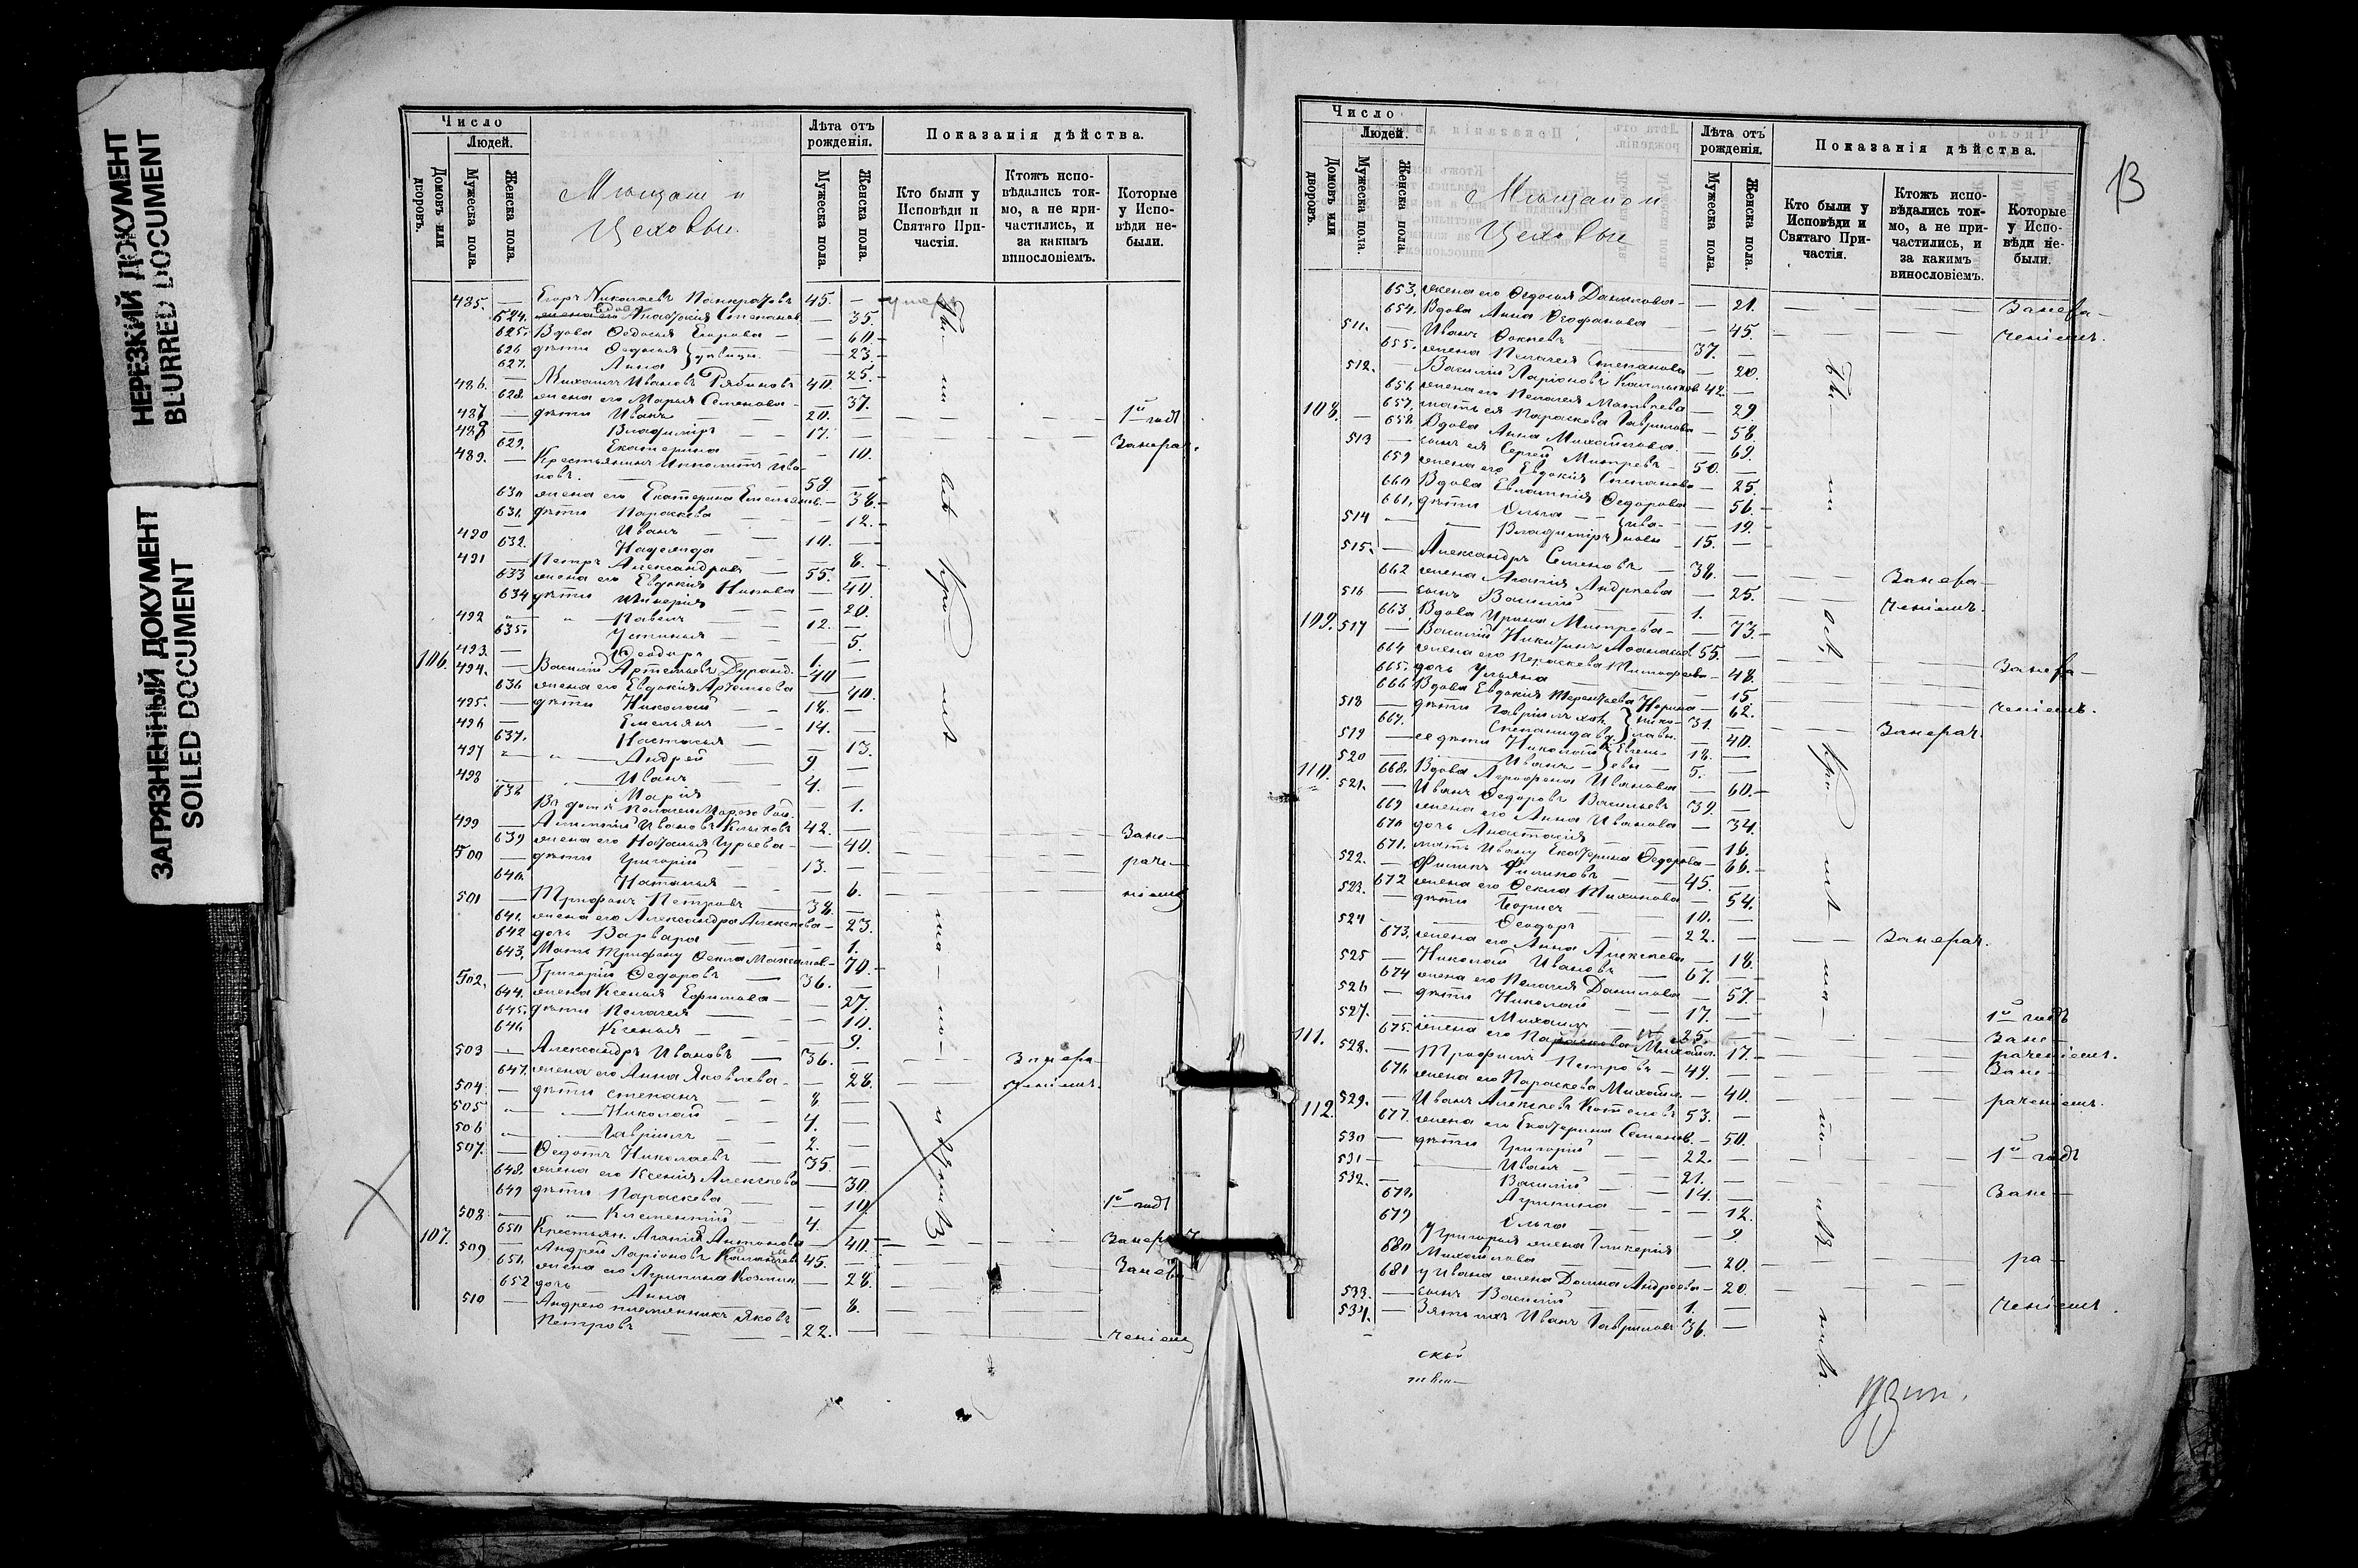 НЕРЕЗКИЙ ДОКУМЕНТ
BLURRED DOCUMENT
ЗАГРЯЗНЕННЫЙ ДОКУМЕНТ
SOILED DOCUMENT
Число
Людей.
Домовъ или дворовъ.
Мужеска пола.
Женска пола.
Мѣщане и
Цеховые.
Лѣта отъ рожденія.
Мужеска пола.
Женска пола.
Показанія дѣйства.
Кто были у Исповѣди и Святаго Причастія.
Ктожъ исповѣдались токмо, а не причастились, и за какимъ винословіемъ.
Которые у Исповѣди небыли.
485. — Егоръ Николаевъ Панкратовъ 45. —
524. жена его вдова Степанов. — 35.
625. Вдова Ѳедосія Егорова — — 60.
626 дѣти Ѳедосія } дѣвицы — 23.
627. Анна — 25.
486. — Михаилъ Ивановъ Рябиновъ 40. —
628. жена его Марья Семенова — 37.
487 — дѣти Иванъ 20. — 1й годъ
488 — Владиміръ 17. — Занерач.
629. Екатерина — 10.
489. — Крестьянинъ Ипполитъ Ива-
новъ. 59 —
630 жена его Екатерина Емельянов. — 38.
631. дѣти Параскева — 12.
490 — Иванъ 10. —
632. Надежда — 8.
491 — Петръ Александровъ 55. —
633 жена его Евдокія Никова — 40.
634 дѣти Гликерія — 20.
492 — Павелъ 12. —
635. Устинья — 5.
493. — Ѳеодоръ 1. —
106. 494. — Василій Артемьевъ Дуранд. 40 —
636 жена его Евдокія Артемьева — 40.
495. — дѣти Николай 18. —
496 — Емельянъ 14. —
637. Настасья — 13.
497 — Андрей 9 —
498 — Иванъ 4. —
638 Марія — 1.
Въ домѣ Пелагеи
499 — Алексѣй Ивановъ Клыковъ 42. — Зане—
639 жена его Наталья Гурьева — 40.
500 — дѣти Григорій 13. — раче—
640. Наталья — 6.
501 — Трифонъ Петровъ 38. — ніемъ
641. жена его Александра Алексѣева — 23.
642 дочь Варвара — 1.
643. Мать Трифону Ѳекла Максимов. — 70.
502. — Григорій Ѳедоровъ 36. —
644. жена Ксенія Ефимова — 27.
645. дѣти Пелагея — 10.
646 Ксенья — 9.
503 — Александръ Ивановъ 36. — Занера-
647. жена его Анна Яковлева — 28. ченіемъ.
504. — дѣти Степанъ 8 —
505 — Николай 4. —
506 — Гавріилъ 2. —
507. — Ѳедотъ Николаевъ 35. —
648. жена его Ксенія Алексѣева — 30.
649 дѣти Параскева — 10. 1й годъ
508 — Климентій 4. —
650 Крестьян. Агапія Антонова — 40. Занерач
107. 509 — Андрей Ларіоновъ 45. — Зане
651. жена его Агрипина Козмин. — 28.
652 дочь Анна — 8.
510 — Андрею племянникъ Яковъ
Петровъ 22. — ченіемъ
13
Число
Людей.
Домовъ или дворовъ.
Мужеска пола.
Женска пола.
Мѣщане и
Цеховые
Лѣта отъ рожденія.
Мужеска пола.
Женска пола.
Показанія дѣйства.
Кто были у Исповѣди и Святаго Причастія.
Ктожъ исповѣдались токмо, а не причастились, и за какимъ винословіемъ.
Которые у Исповѣди небыли.
653. жена его Ѳедосія Данилова — 21. Занера—
654. Вдова Анна Ѳеофанова — 45. ченіемъ.
511. — Иванъ Ѳокіевъ 37. —
655. жена Пелагея Степанова — 20.
512. — Василій Ларіоновъ 42. —
656 жена его Пелагея Матвѣева — 29
108. 657. мать ея Параскева Гаврилова — 58.
658 Вдова Анна Михайлова — 69.
513 — сынъ ея Сергей Митревъ 50. —
659 жена его Евдокія Степанова — 25.
660 Вдова Евлампія Ѳедорова — 56.
661. дѣти Ольга } Ива- — 19.
514 — Владиміръ } новы 15. —
515. — Александръ Семеновъ 38. — Занера—
662 жена Агапія Андреева — 25. ченіемъ.
516 — сынъ Василій 1. —
663. Вдова Ирина Митрева — 73.
109. 517 — Василій Никитинъ Аѳанасьев. 55. —
664 жена его Параскева Тимоѳеева — 48. Занера—
665. дочь Ульяна — 15
666. Вдова Евдокія Терентьева — 62. ченіемъ.
518 — дѣти Гавріилъ хол. } Нико- 31. — Занерач.
667. Степанида вд. } лавы. — 40.
519 — ея дѣти Николай } Евген- 18. —
520 — Иванъ } евы 5. —
110. 668. Вдова Агрофена Иванова — 60.
521. — Иванъ Ѳедоровъ Васильевъ 39. —
669 жена его Анна Иванова — 34.
670 дочь Анастасія — 16.
671. мать Ивану Екатерина Ѳедорова — 66.
522. — Филипъ Филиповъ 45. —
672 жена его Ѳекла Тихонова — 54.
523. — дѣти Борисъ 10. —
524 — Ѳеодоръ 22. — Занерач.
673. жена его Анна Алексѣева — 18.
525 — Николай Ивановъ 67. —
674 жена его Пелагея Данилова — 57.
526 — дѣти Николай 17. — 1й годъ
527. — Михаилъ 25. — Зане—
111. 675. жена его Михайл. 17. раченіемъ.
528. — Трофимъ Петровъ 49. — Зане—
676 жена его Параскева Михайл. — 40. раченіемъ.
529. — Иванъ Алексѣевъ Котеловъ 53. —
112. 677. жена его Екатерина Семенов. — 50.
530 — дѣти Григорій 22. — 1й годъ
531 — Иванъ 21. —
532. — Василій 14. — Зане—
678. Агрипина — 12.
679 Ольга — 9
680 У Григорья жена Гликерія
Михайлова — 20. ра—
681 у Ивана жена Домна Андреева — 20.
533. — сынъ Василій 1. — ченіемъ.
534. — Зять ихъ Иванъ Гавриловъ 36. —